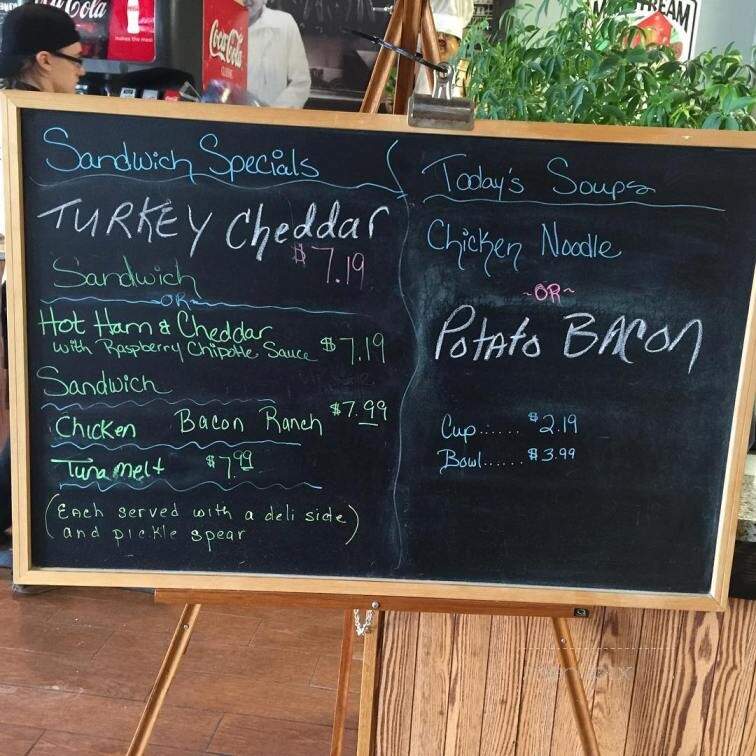 Coca-Cola
makes the meal
Coca-Cola
CLASSIC
STREAM
Sandwich Specials
TURKEY Cheddar
$7.19
Sandwich
OR
Hot Ham & Cheddar
with Raspberry Chipotle Sauce $7.19
Sandwich
Chicken Bacon Ranch $7.99
Tuna melt $7.99
(Each served with a deli side
and pickle spear)
Today's Soups
Chicken Noodle
~OR~
Potato BACON
Cup...... $2.19
Bowl...... $3.99